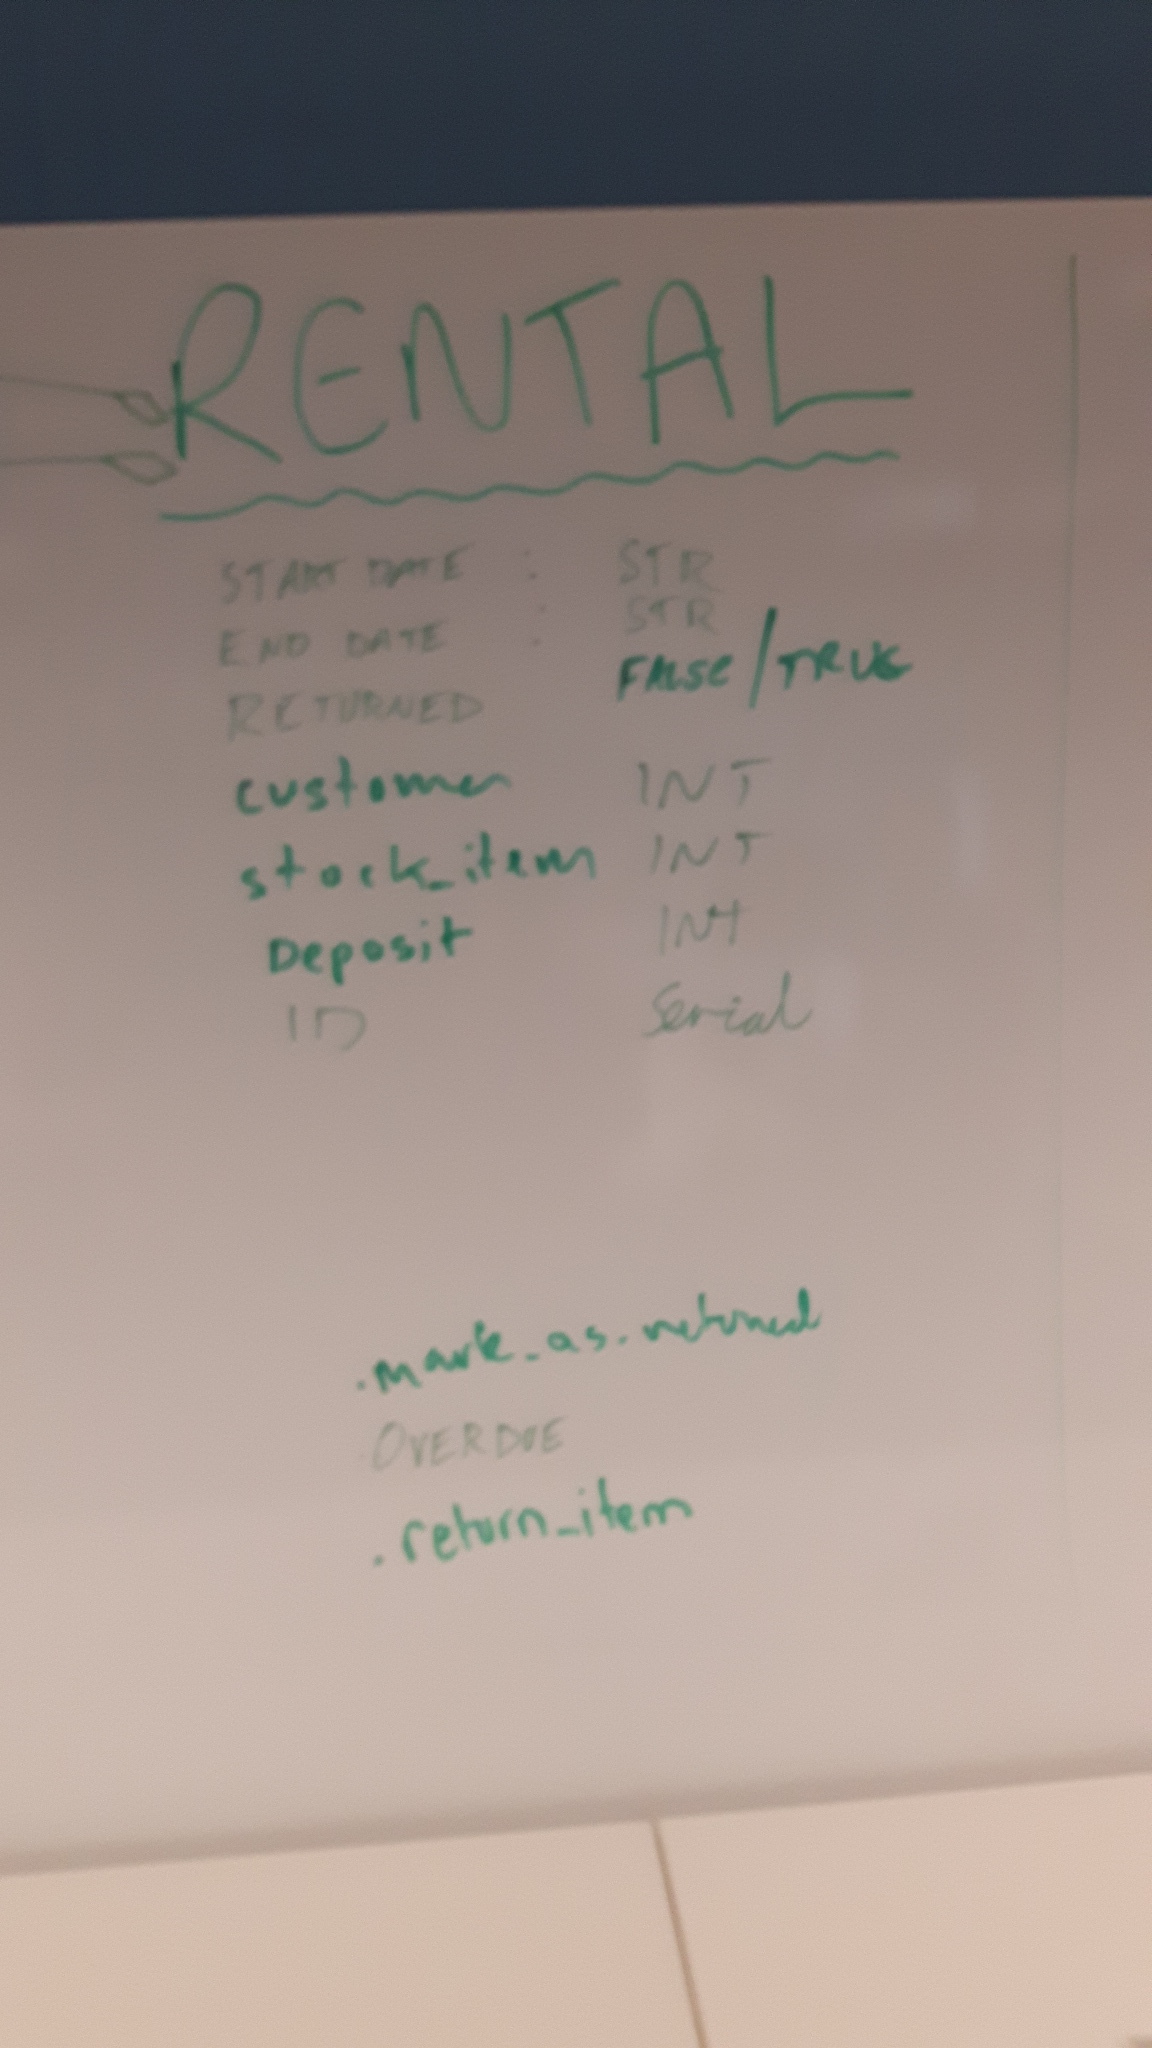 RENTAL
START DATE : STR
END DATE : STR
RETURNED FALSE/TRUE
customer INT
stock_item INT
Deposit INT
ID Serial
.mark_as_returned
OVERDUE
.return_item